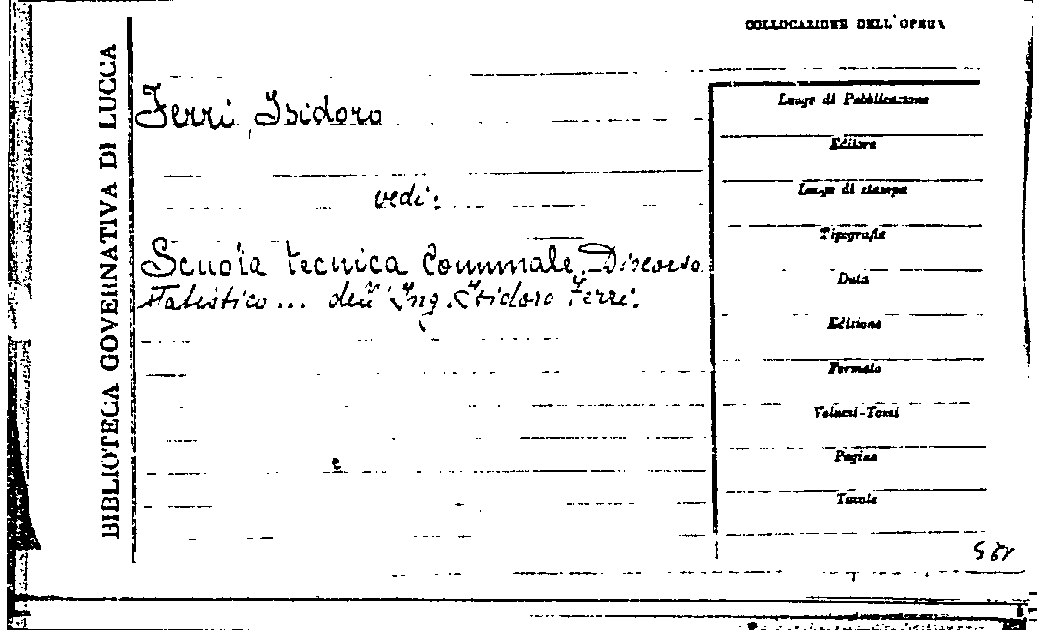 COLLOCAZIONE DELL'OPERA
BIBLIOTECA GOVERNATIVA DI LUCCA
Ferri, Isidoro
vedi:
Scuola tecnica Comunale. Discorso
statistico... dell'Ing. Isidoro Ferri.
Luogo di Pubblicazione
Editore
Luogo di stampa
Tipografia
Data
Edizione
Formato
Volumi-Tomi
Pagine
Tavole